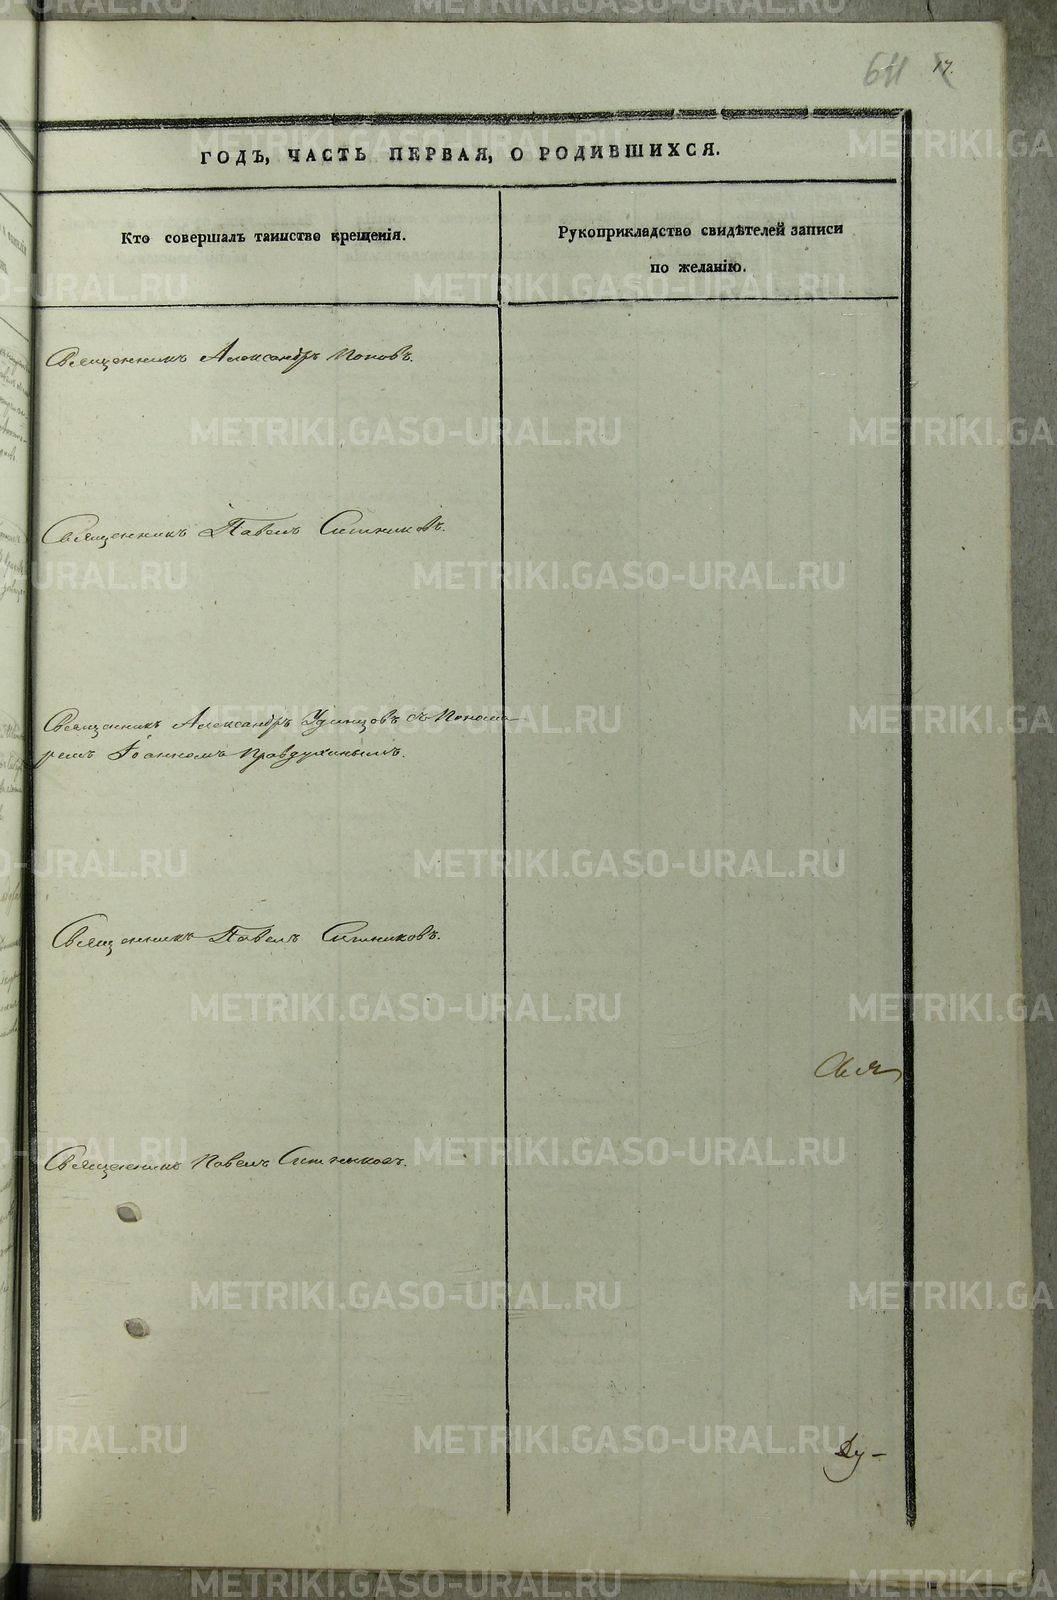 611 17.
ГОДЪ, ЧАСТЬ ПЕРВАЯ, О РОДИВШИХСЯ.
Кто совершалъ таинство крещенія.
Рукоприкладство свидѣтелей записи
по желанію.
Священникъ Александръ Поповъ.
Священникъ Павелъ Ситниковъ.
Священникъ Александръ Удинцовъ съ Понома-
ремъ Іоанномъ Правдухинымъ.
Священникъ Павелъ Ситниковъ.
Свя
Священникъ Павелъ Ситниковъ.
Ду-
METRIKI.GASO-URAL.RU